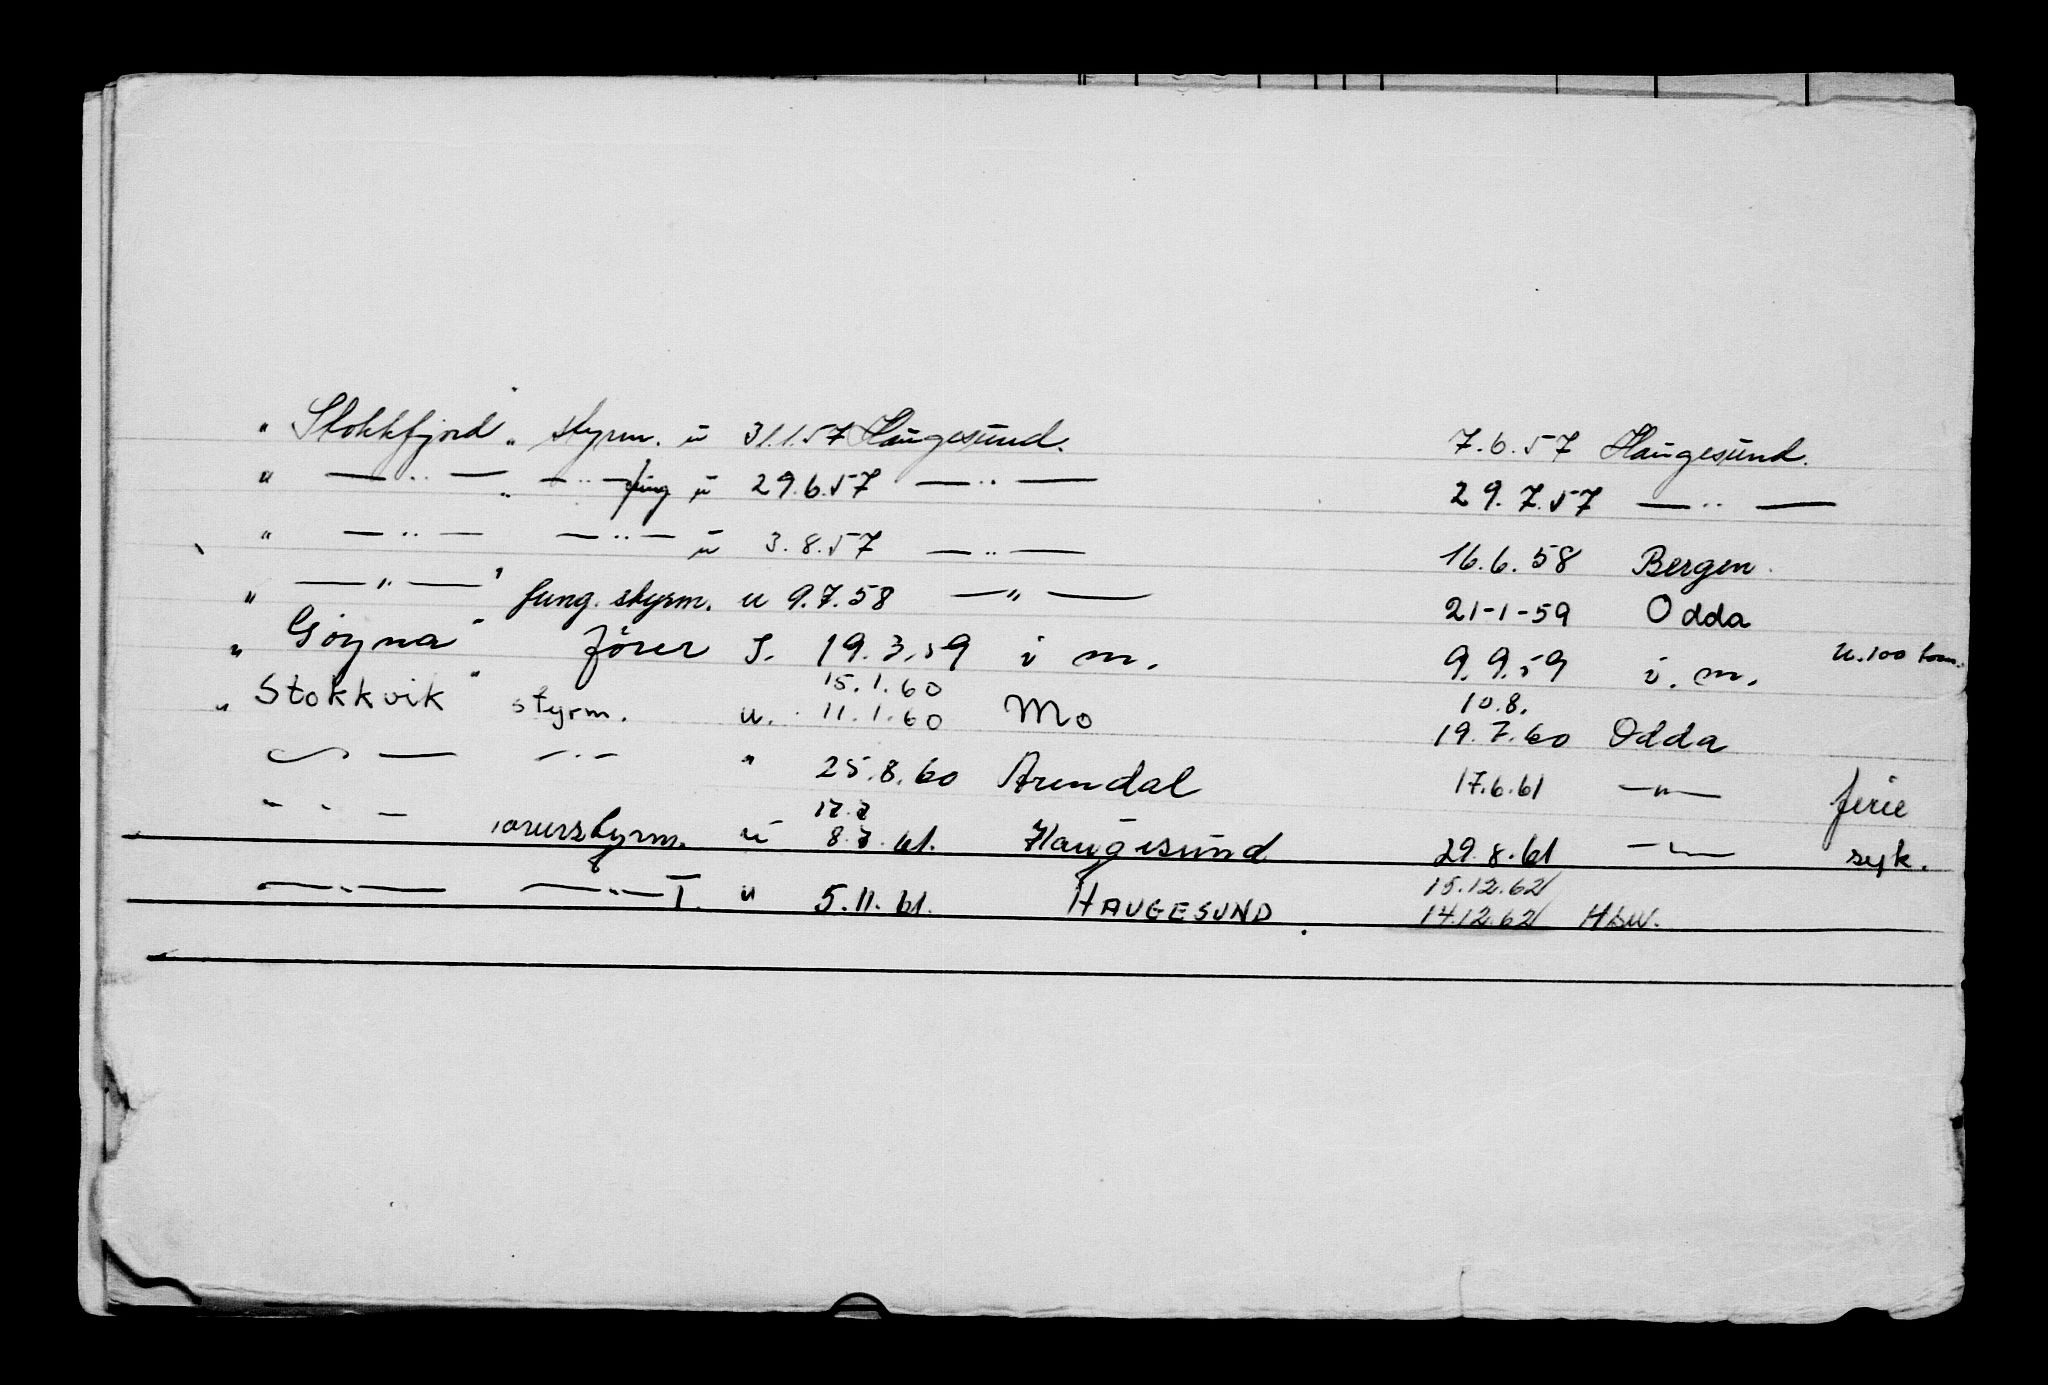 " Stokkfjord " styrm. u 31.1.57 Haugesund. 7.6.57 Haugesund.
" — " — " — " — fung u 29.6.57 — " — 29.7.57 — " —
" — " — — " — u 3.8.57 — " — 16.6.58 Bergen.
" — " — " fung. styrm. u 9.7.58 — " — 21-1-59 Odda
" Goyna " förer S. 19.3.59 i m. 9.9.59 i. m. u.100 tonn.
15.1.60 10.8.
" Stokkvik " styrm. u. 11.1.60 Mo 19.7.60 Odda
— " — — " — " 25.8.60 Arendal 17.6.61 — " — ferie
— " — u 8.7.61. Haugesund 29.8.61 — " — syk.
15.12.62
— " — — " — I. u 5.11.61. HAUGESUND. 14.12.62